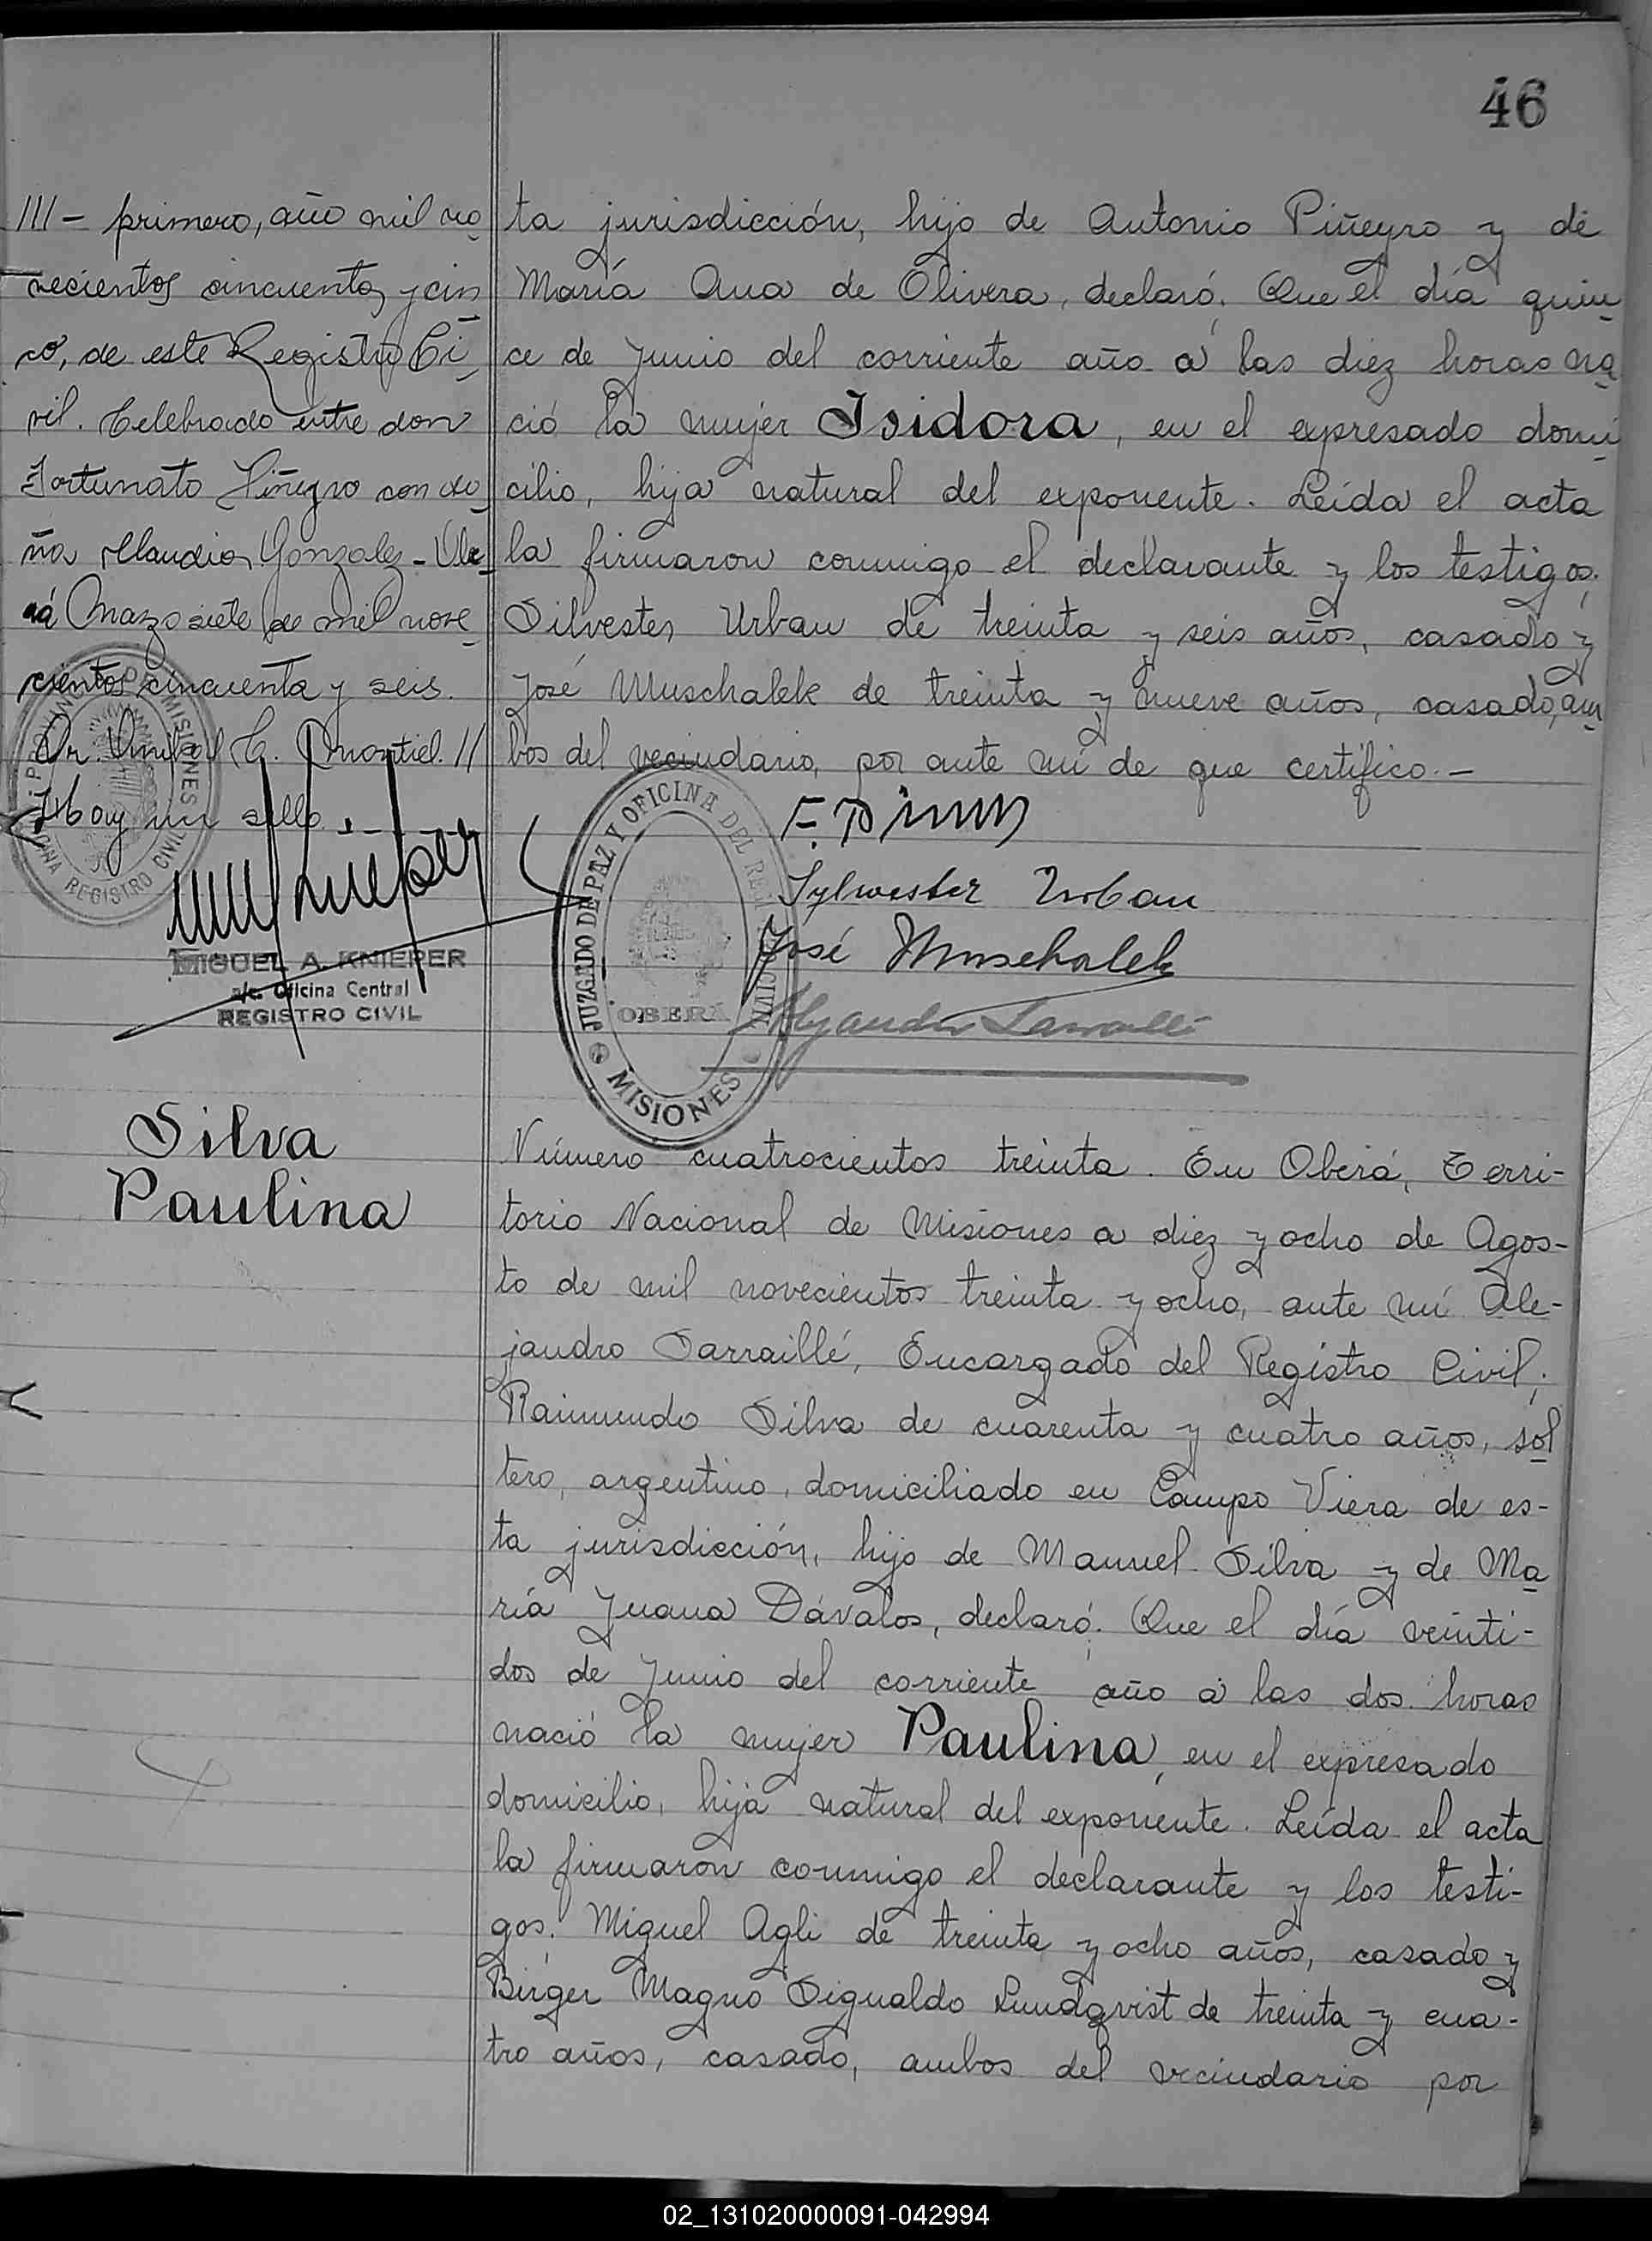 46
III - primero, año mil no
vecientos cincuenta y cin
co, de este Registro Ci
vil. Celebrado entre don
Fortunato Piñeyro con do
ña Claudia Gonzalez - Ole
rá Marzo siete de mil nove
cientos cincuenta y seis.
Dr. Anibal C. Montiel. //
Hay un sello.
MIGUEL A. KNIEPER
a/c. Oficina Central
REGISTRO CIVIL
ta jurisdicción, hijo de Antonio Piñeyro y de
María Ana de Olivera, declaró: Que el día quin
ce de Junio del corriente año a las diez horas na
ció la mujer Isidora, en el expresado domi
cilio, hija natural del exponente. Leída el acta
la firmaron conmigo el declarante y los testigos:
Silvester Urban de treinta y seis años, casado y
José Muschalek de treinta y nueve años, casado, am
bos del vecindario, por ante mí de que certifico.-
Sylwester Urban
José Muschalek
Alejandro Sarraillé
JUZGADO DE PAZ Y OFICINA DEL REG CIVIL
OBERÁ
MISIONES
Silva
Paulina
Número cuatrocientos treinta. En Oberá, Terri-
torio Nacional de Misiones a diez y ocho de Agos-
to de mil novecientos treinta y ocho, ante mí Ale-
jandro Sarraillé, Encargado del Registro Civil;
Raimundo Silva de cuarenta y cuatro años, sol
tero, argentino, domiciliado en Campo Viera de es-
ta jurisdicción, hijo de Manuel Silva y de Ma
ría Juana Dávalos, declaró: Que el día veinti-
dos de Junio del corriente año a las dos horas
nació la mujer Paulina, en el expresado
domicilio, hija natural del exponente. Leída el acta
la firmaron conmigo el declarante y los testi-
gos: Miguel Agli de treinta y ocho años, casado y
Birger Magno Sigualdo Lundqvist de treinta y cua-
tro años, casado, ambos del vecindario por
02_131020000091-042994